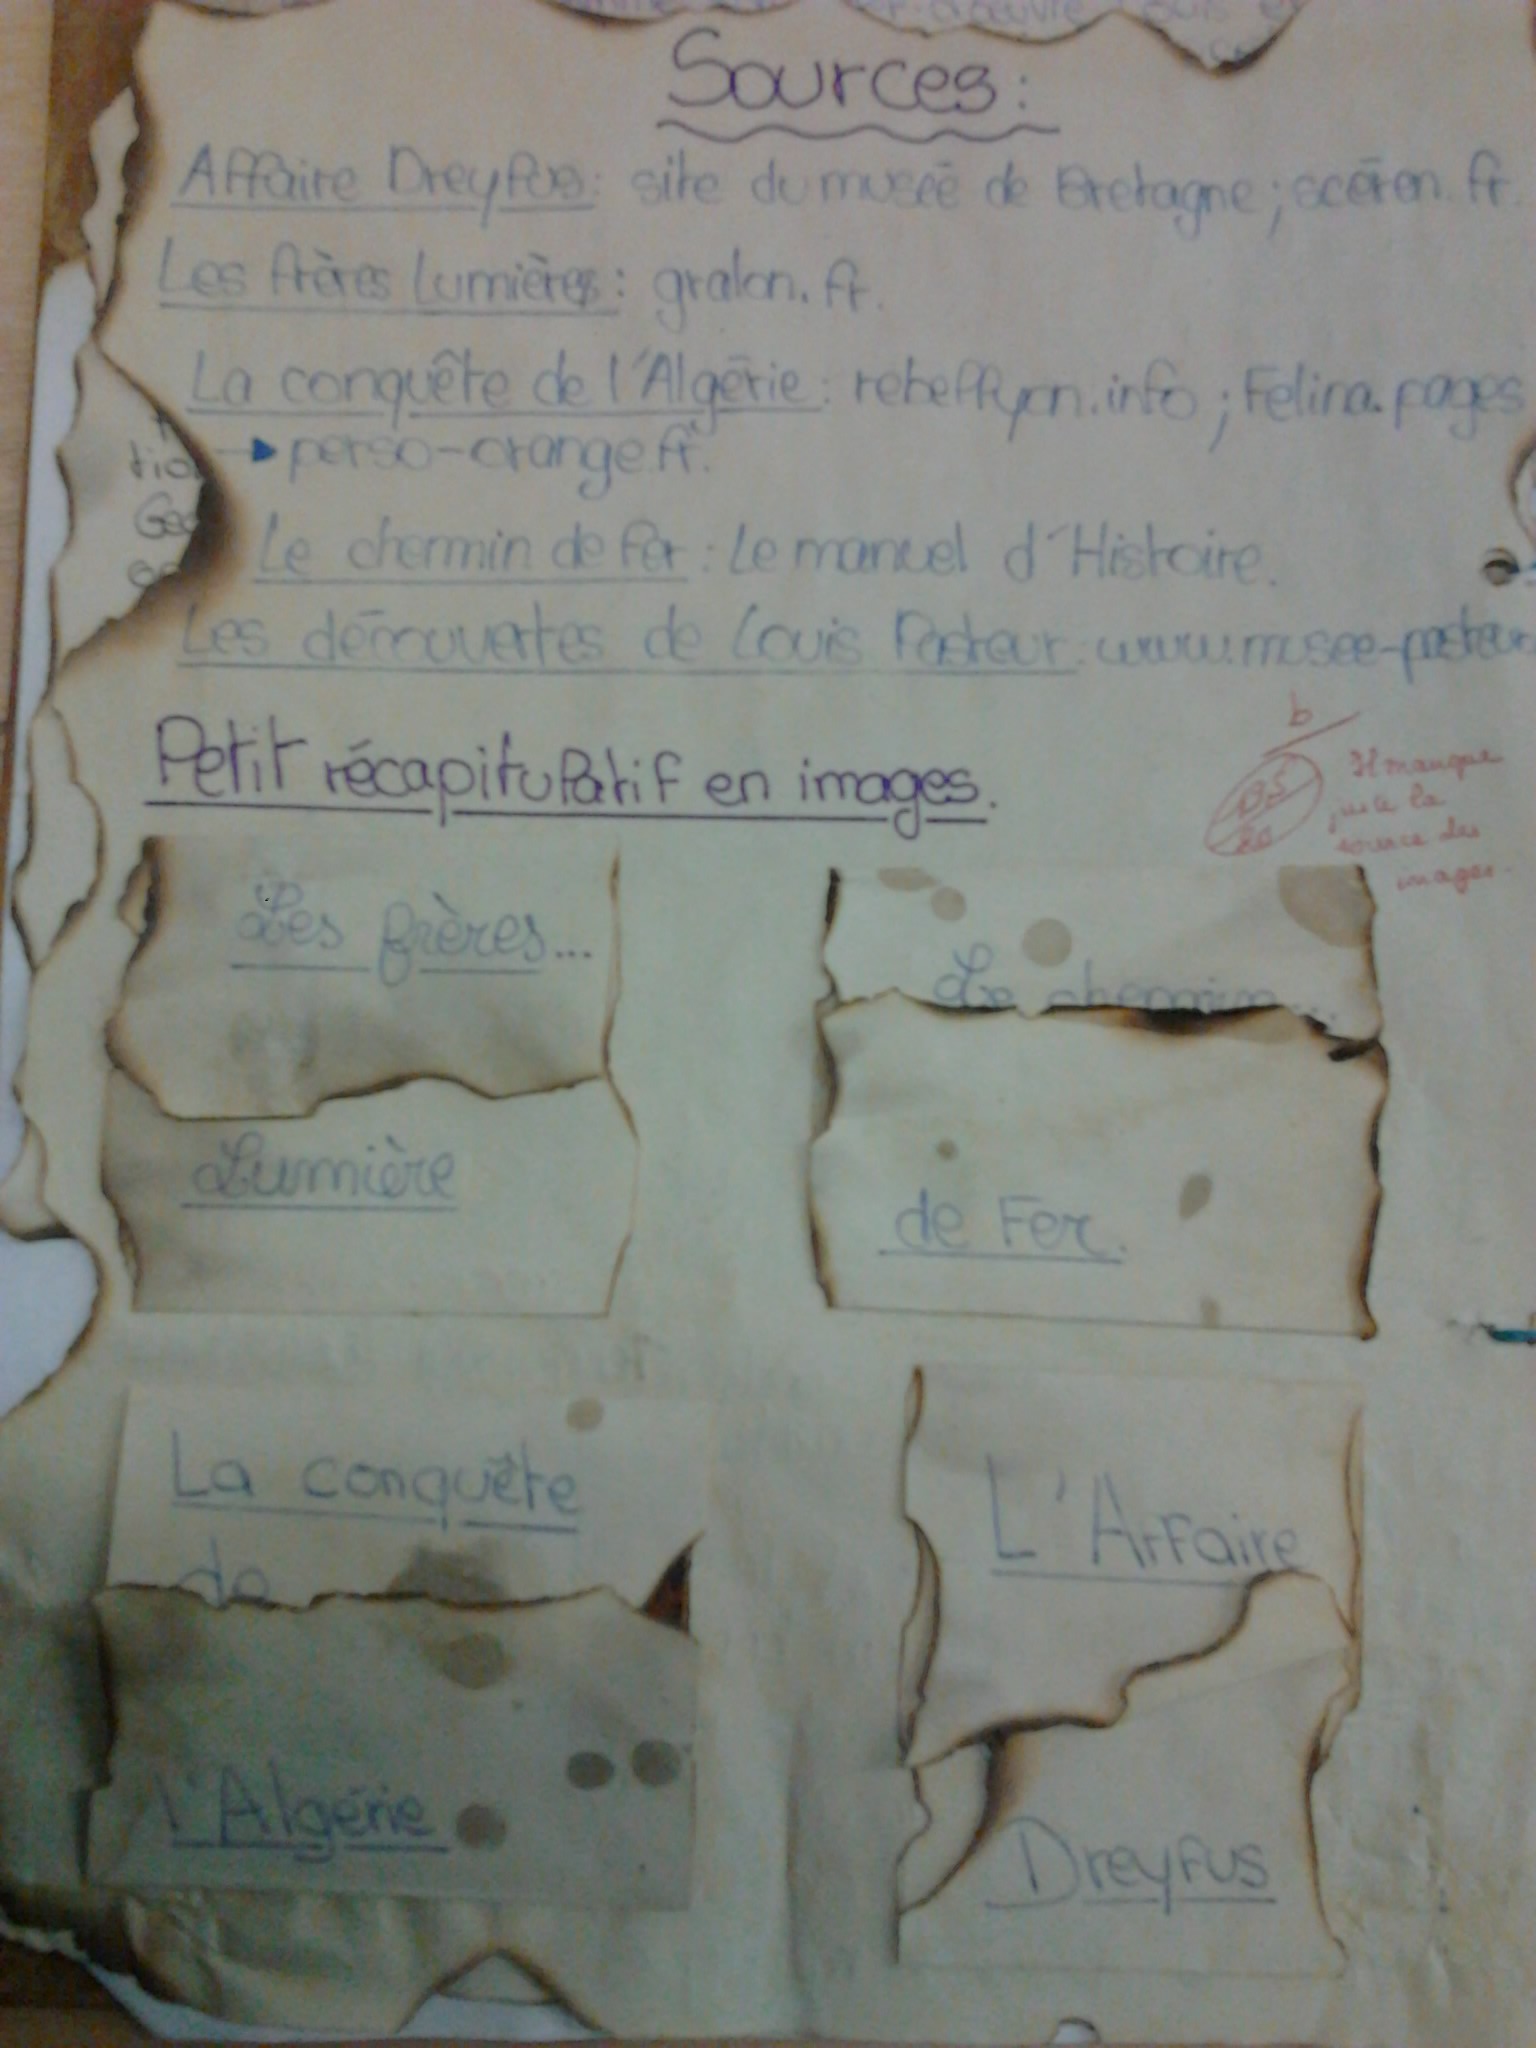 Sources:
Affaire Dreyfus: site du musée de Bretagne; scéren.fr.
Les frères Lumières: gralon.fr.
La conquête de l'Algérie: rebellyon.info; Felina.pages
tion → perso-orange.fr.
Le chemin de fer: Le manuel d'Histoire.
Les découvertes de Louis Pasteur: www.musee-pasteur
Petit récapitulatif en images.
b
Il manque
juste la
source des
images.
20
Les frères...
Lumière
Le chemin...
de Fer.
La conquête
de
l'Algérie
L'Affaire
Dreyfus